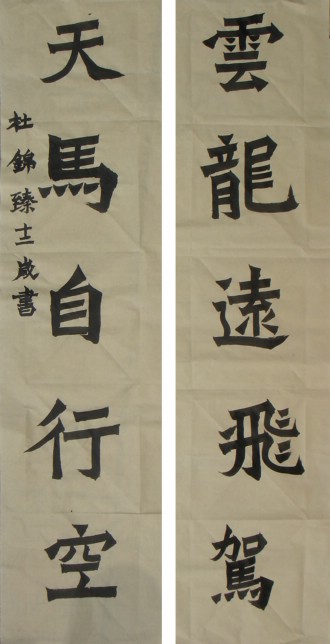 雲龍遠飛駕
天馬自行空
杜錦臻十二歲書